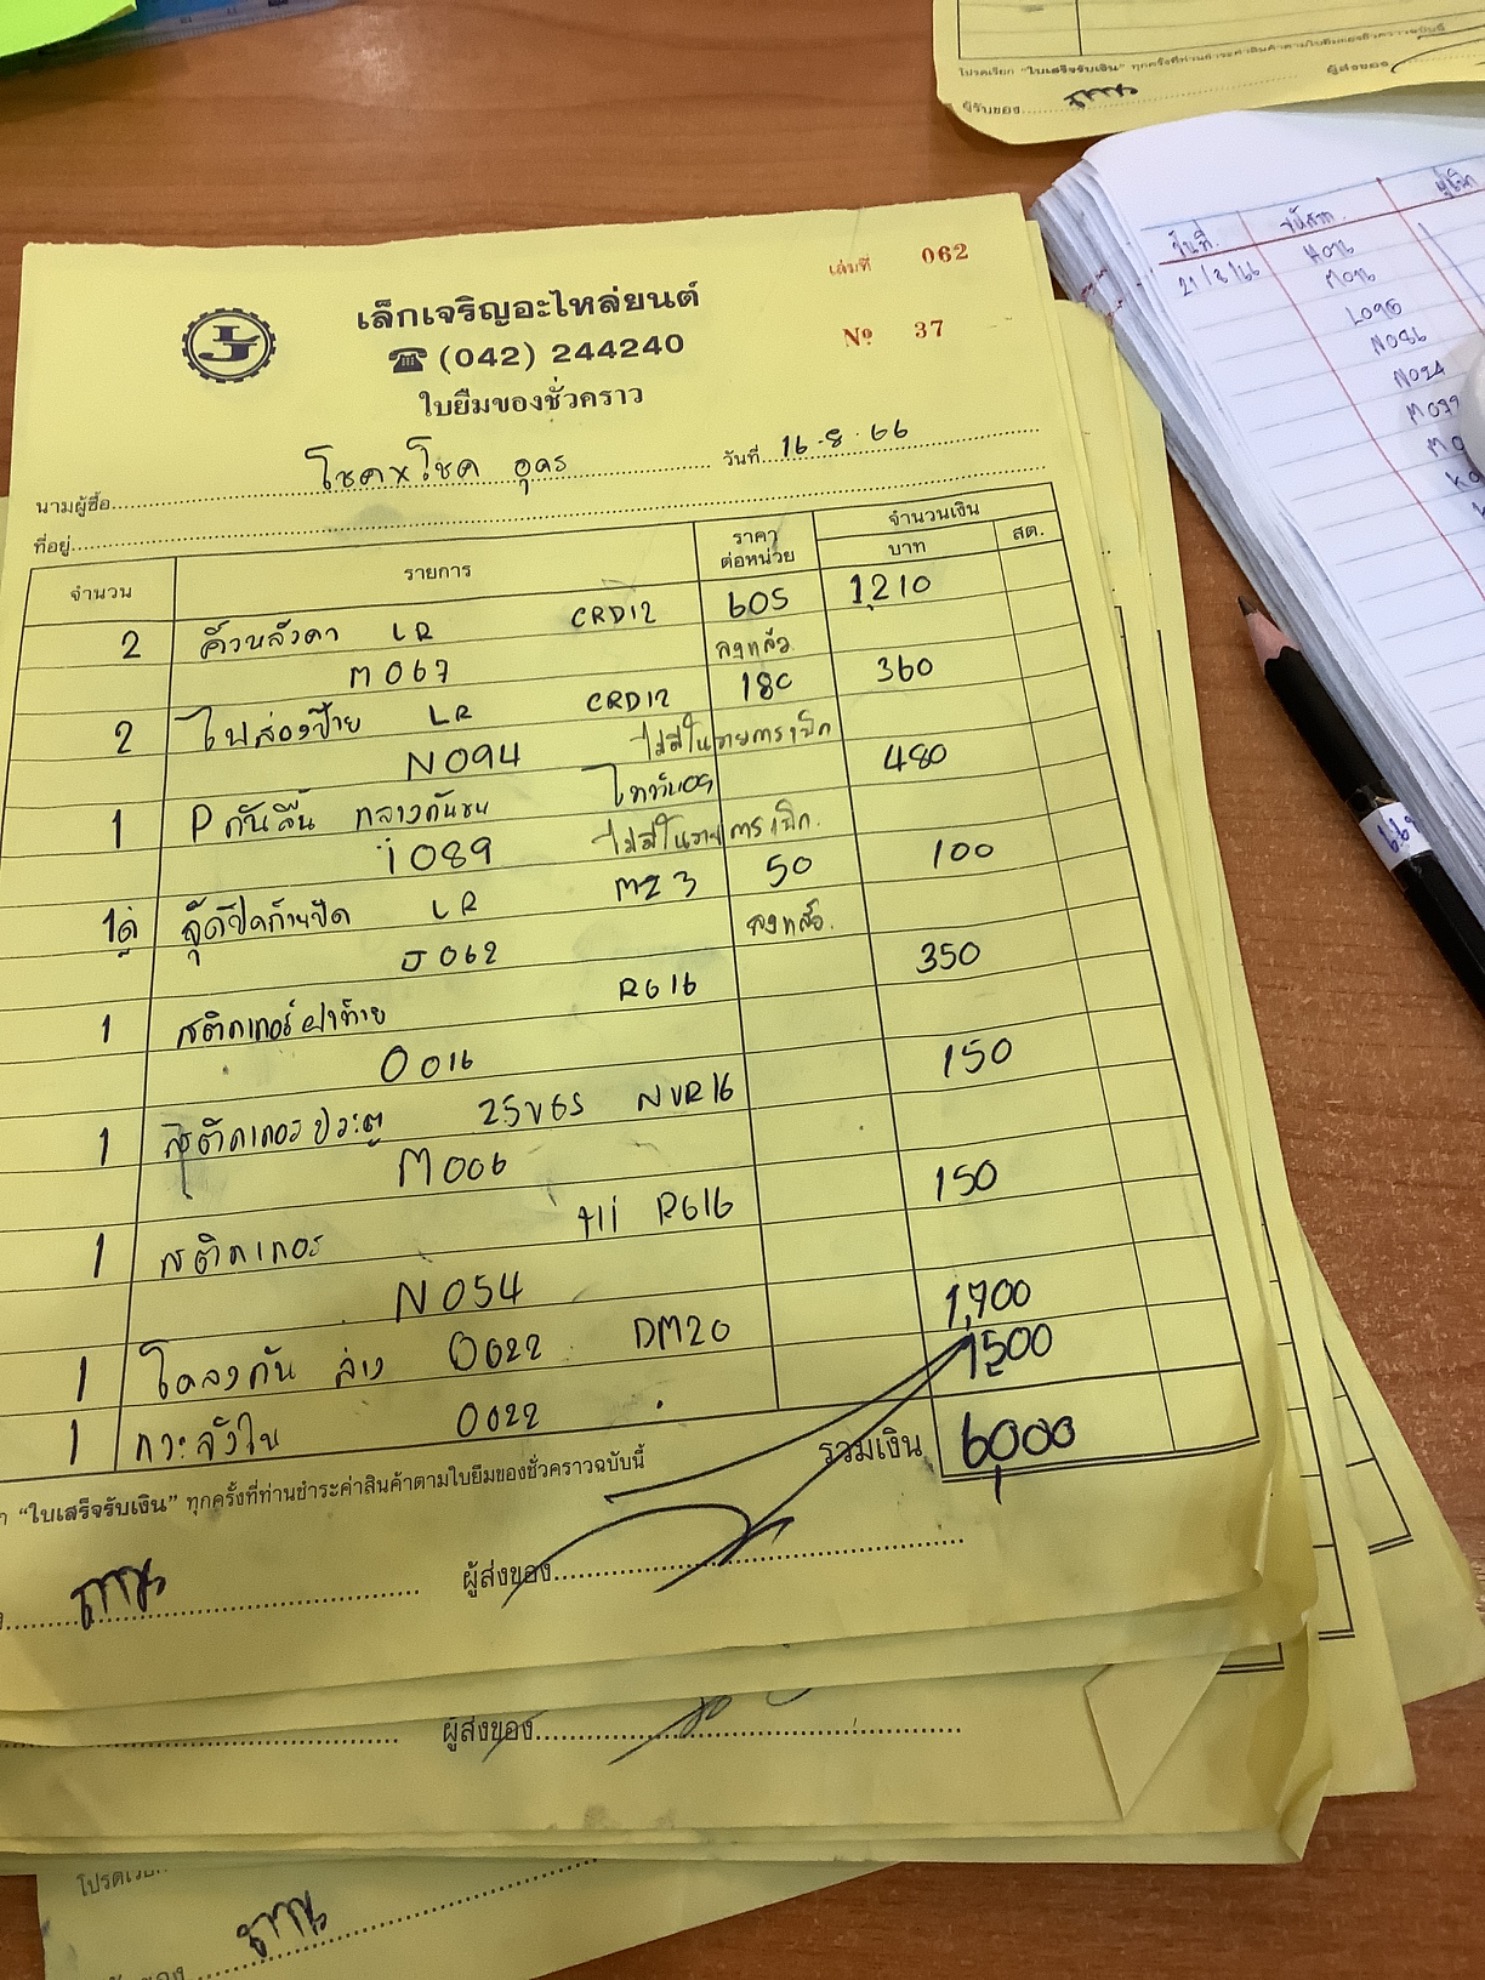 โปรดเรียก "ใบเสร็จรับเงิน" ทุกครั้งที่ท่านชำระค่าสินค้าตามใบยืมของชั่วคราวฉบับนี้
ผู้รับของ ผู้ส่งของ
วันที่
21/8/66
M016
L095
N086
N094
เล่มที่ 062
เล็กเจริญอะไหล่ยนต์
Nº 37
☎ (042) 244240
ใบยืมของชั่วคราว
นามผู้ซื้อ โชคxโชค อุดร วันที่ 16-8-66
ที่อยู่
จำนวน รายการ ราคาต่อหน่วย จำนวนเงิน
บาท สต.
2 คิ้วหลังคา LR CRD12 605 1,210
M067 ลงแล้ว
2 ไฟส่องป้าย LR CRD12 180 360
N094 ไม่มีในรายการเบิก
1 P กันลื่น กลางกันชน ไททันอร 480
i089 ไม่มีในรายการเบิก
1คู่ จุ๊ดปิดก้านปัด LR MZ3 50 100
J062 ลงแล้ว
1 สติกเกอร์ฝาท้าย RG16 350
O016
1 สติกเกอร์ประตู 25VGS NVR16 150
M006
1 สติกเกอร Hi RG16 150
N054
1 โครงกัน ล่าง O022 DM20 1,700
1 กระจังใน O022 1500
รวมเงิน 6,000
"ใบเสร็จรับเงิน" ทุกครั้งที่ท่านชำระค่าสินค้าตามใบยืมของชั่วคราวฉบับนี้
ผู้ส่งของ
ผู้ส่งของ